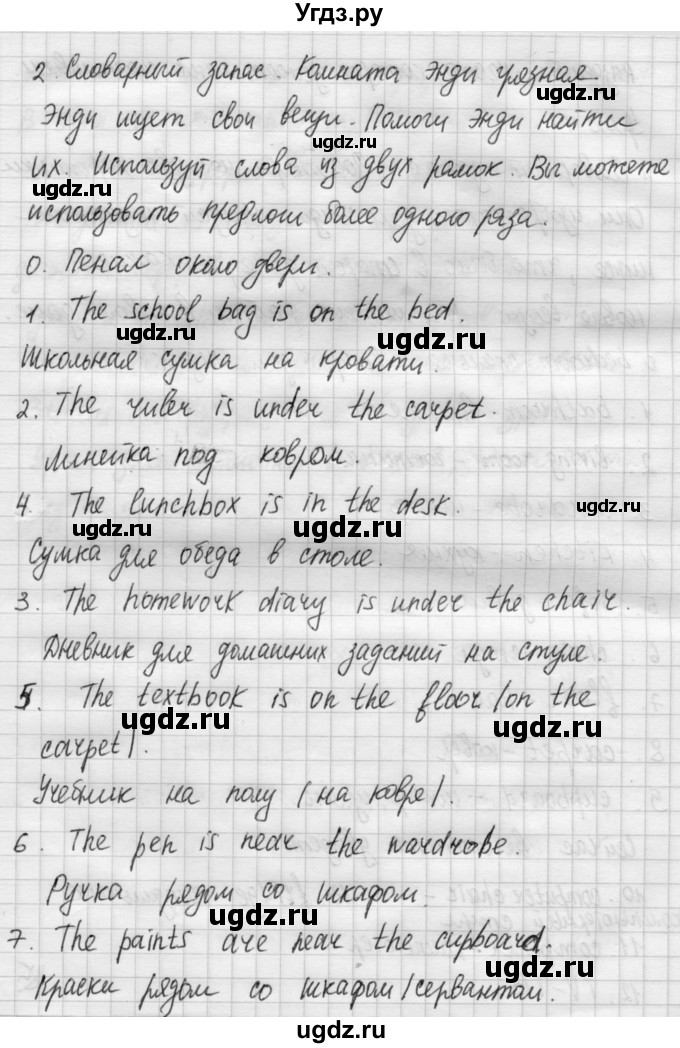 Угдз.ру
2. Словарный запас. Комната Энди грязная.
Энди ищет свои вещи. Помоги Энди найти
их. Используй слова из двух рамок. Вы можете
использовать предлоги более одного раза.
0. Пенал около двери.
1. The school bag is on the bed.
Школьная сумка на кровати.
2. The ruler is under the carpet.
Линейка под ковром.
4. The lunchbox is in the desk.
Сумка для обеда в столе.
3. The homework diary is under the chair.
Дневник для домашних заданий на стуле.
5. The textbook is on the floor (on the
carpet).
Учебник на полу (на ковре).
6. The pen is near the wardrobe.
Ручка рядом со шкафом.
7. The paints are near the cupboard.
Краски рядом со шкафом/сервантом.
ugdz.ru